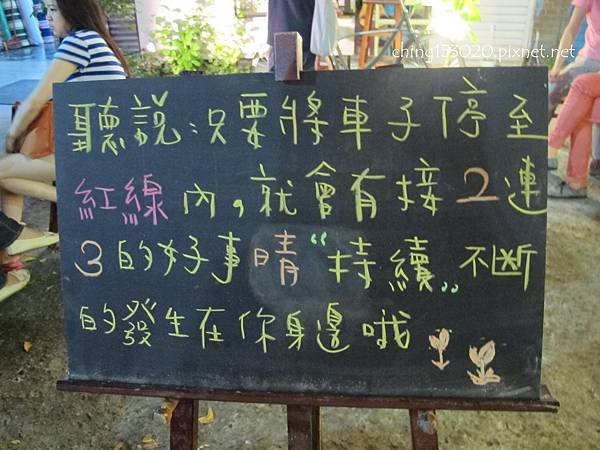 ching153020.pixnet.net
聽說：只要將車子停至
紅線內，就會有接2連
3的好事晴“持續”不斷
的發生在你身邊哦